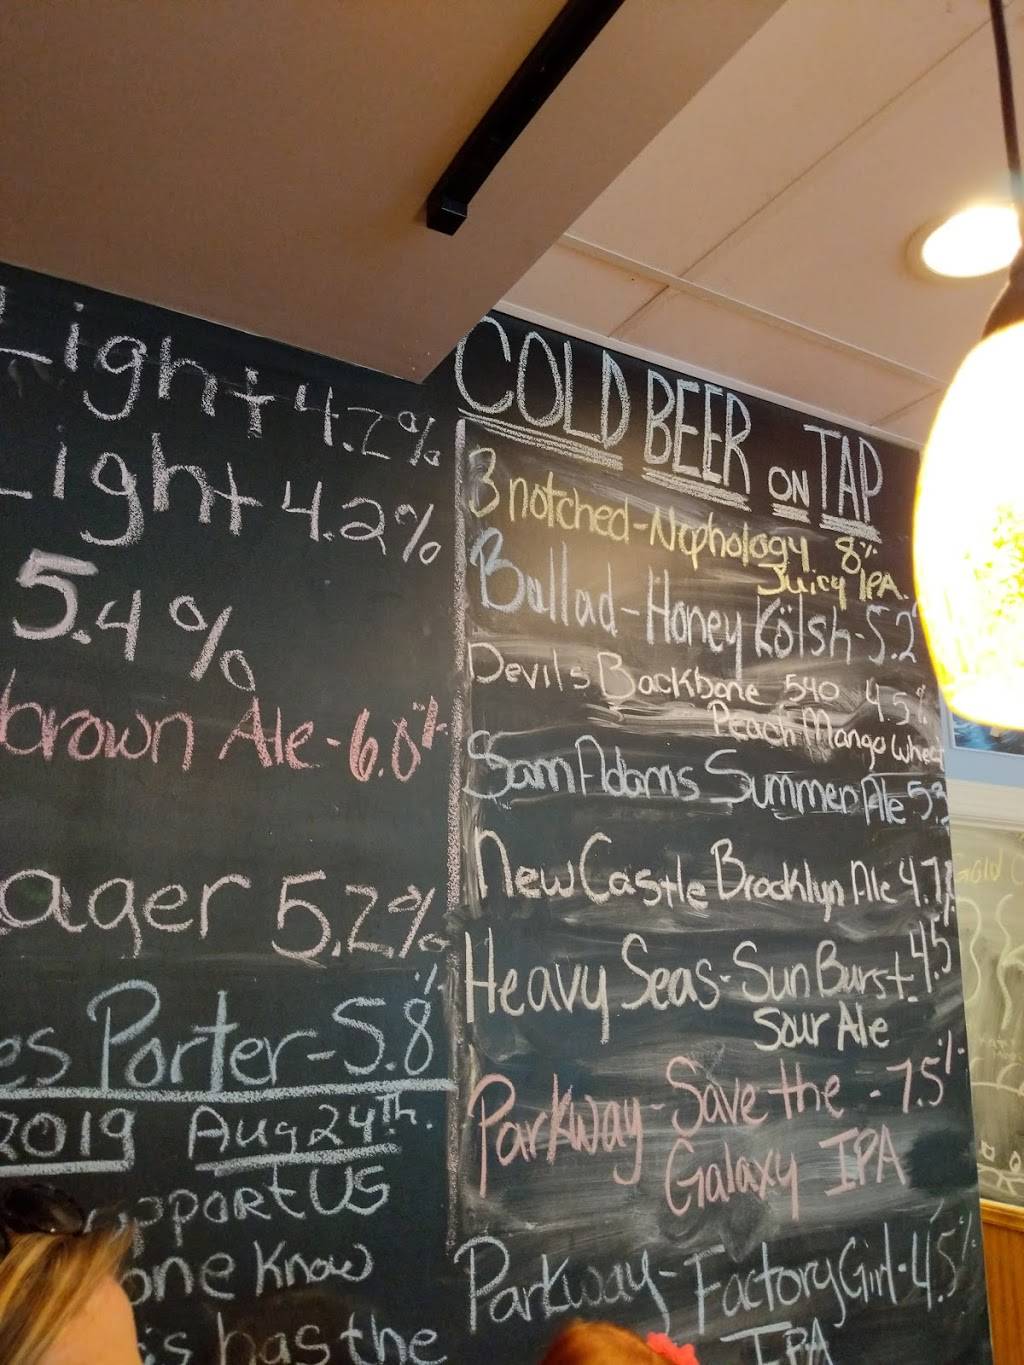 Light 4.2%
Light 4.2%
5.4%
brown Ale - 6.0%
ager 5.2%
es Porter - 5.8%
2019 Aug 24th.
pport US
one Know
has the
COLD BEER ON TAP
3 notched - Nephology 8%
Juicy IPA.
Ballad - Honey Kölsh - 5.2
Devils Backbone 540 4.5%
Peach Mango Wheat
Sam Adams Summer Ale 5.3
New Castle Brocklyn Ale 4.7%
Heavy Seas - Sun Burst - 4.5
Sour Ale
Parkway - Save the - 7.5%
Galaxy IPA
Parkway - Factory Girl - 4.5%
IPA